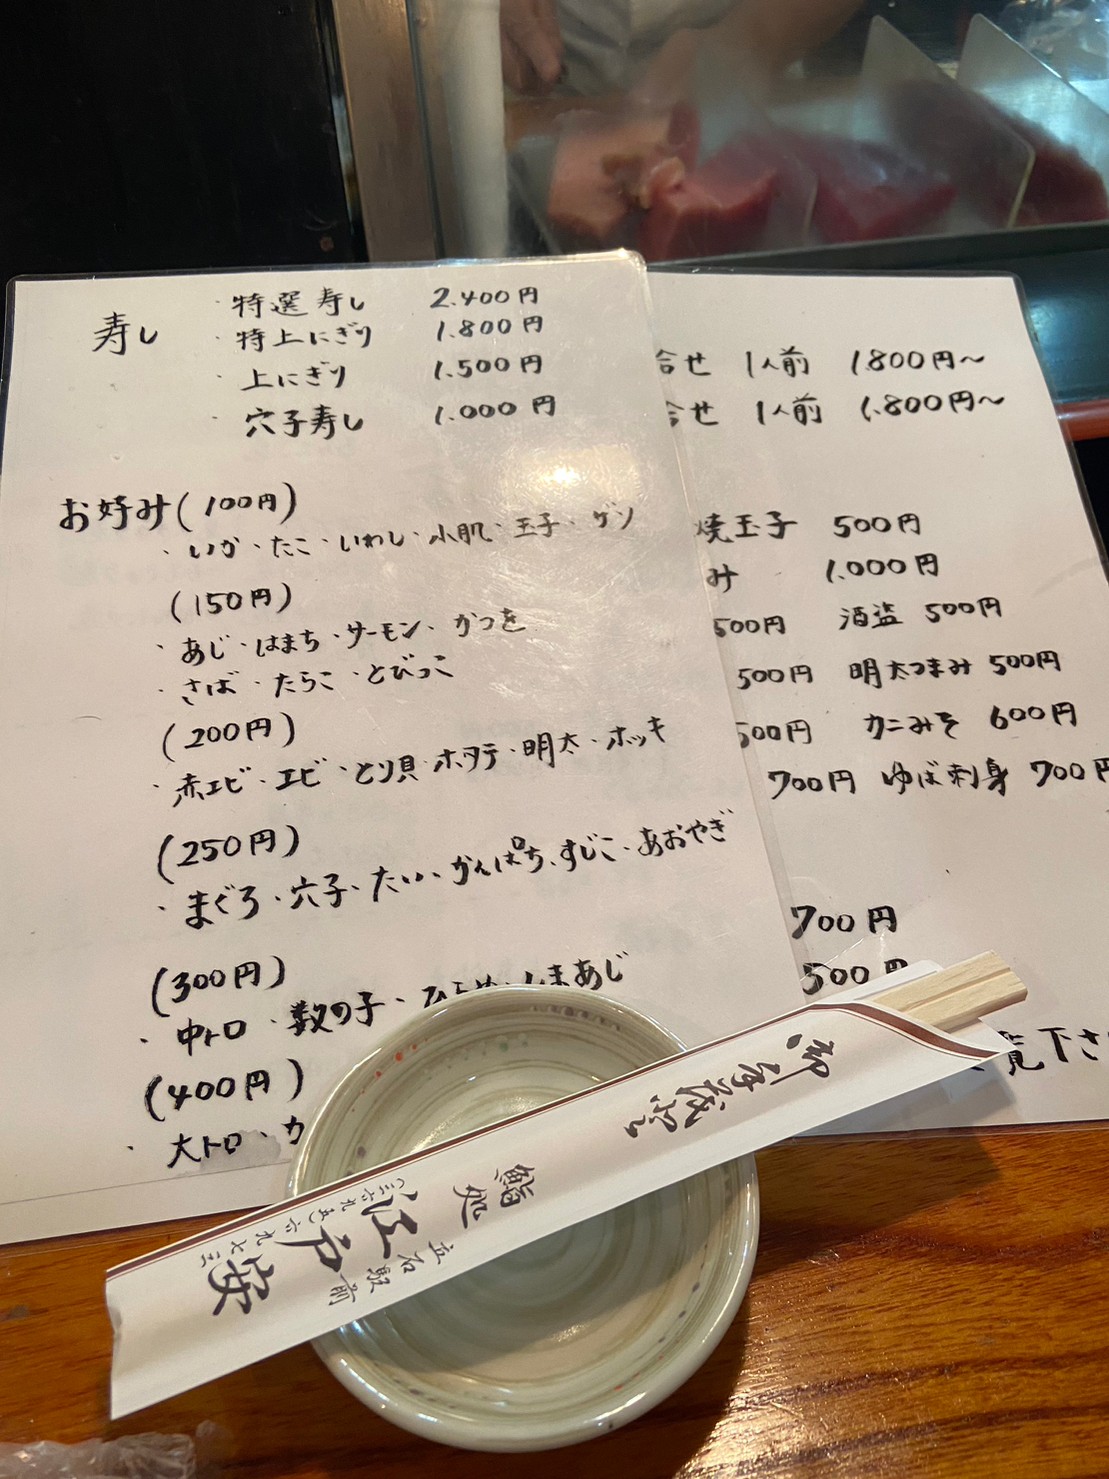 寿し
・特選寿し 2.400円
・特上にぎり 1.800円
・上にぎり 1.500円
・穴子寿し 1.000円
お好み(100円)
・いか・たこ・いわし・小肌・玉子・ゲソ
(150円)
・あじ・はまち・サーモン・かつを
・さば・たらこ・とびっこ
(200円)
・赤エビ・エビ・とり貝・ホタテ・明太・ホッキ
(250円)
・まぐろ・穴子・たい・かんぱち・すじこ・あおやぎ
(300円)
・中トロ・数の子・ひらめ・しまあじ
(400円)
・大トロ・カ
合せ 1人前 1.800円〜
合せ 1人前 1.800円〜
焼玉子 500円
み 1.000円
500円 酒盗 500円
500円 明太つまみ 500円
500円 カニみそ 600円
700円 ゆば刺身 700円
700円
500円
覧下さ
御手茂登
鮨処
江戸安
立石駅前